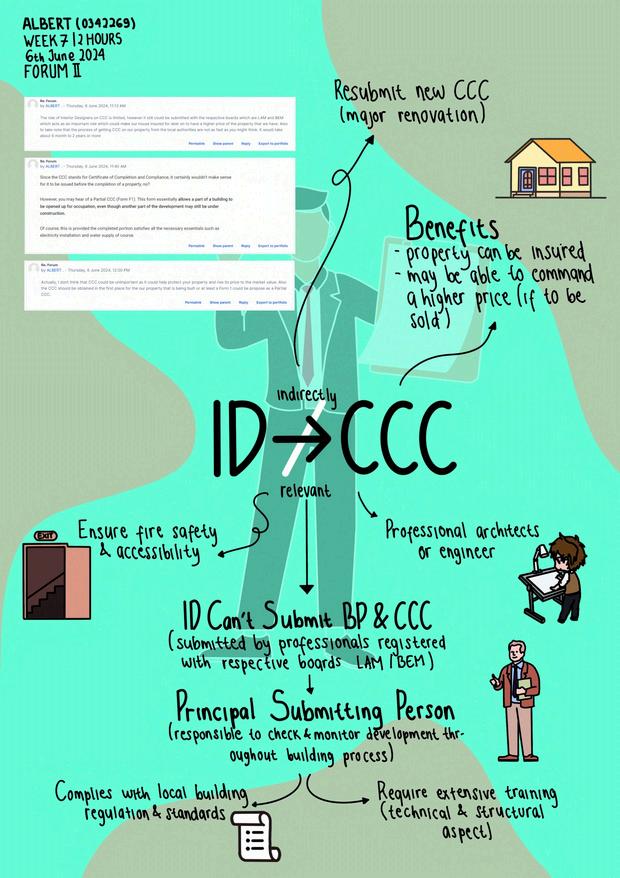 ALBERT (0342269)
WEEK 7 | 2 HOURS
6th June 2024
FORUM II
Re: Forum
by ALBERT . - Thursday, 6 June 2024, 11:13 AM
The role of Interior Designers on CCC is limited, however it still could be submitted with the respective boards which are LAM and BEM
which acts as an important role which could make our house insured for later on to have a higher price of the property that we have. Also
to take note that the process of getting CCC on our property from the local authorities are not as fast as you might think. It would take
about 6 month to 2 years or more
Permalink Show parent Reply Export to portfolio
Re: Forum
by ALBERT . - Thursday, 6 June 2024, 11:45 AM
Since the CCC stands for Certificate of Completion and Compliance, it certainly wouldn't make sense
for it to be issued before the completion of a property, no?
However, you may hear of a Partial CCC (Form F1). This form essentially allows a part of a building to
be opened up for occupation, even though another part of the development may still be under
construction.
Of course, this is provided the completed portion satisfies all the necessary essentials such as
electricity installation and water supply of course.
Permalink Show parent Reply Export to portfolio
Re: Forum
by ALBERT . - Thursday, 6 June 2024, 12:00 PM
Actually, I dont think that CCC could be unimportant as it could help protect your property and rise its price to the market value. Also
the CCC should be obtained in the first place for the our property that is being built or at least a Form 1 could be propose as a Partial
CCC.
Permalink Show parent Reply Export to portfolio
Resubmit new CCC
(major renovation)
Benefits
- property can be insured
- may be able to command
a higher price (if to be
sold)
indirectly
ID → CCC
relevant
EXIT
Ensure fire safety
& accessibility
Professional architects
or engineer
ID Can't Submit BP & CCC
(submitted by professionals registered
with respective boards LAM / BEM)
Principal Submitting Person
(responsible to check & monitor development thr-
oughout building process)
Complies with local building
regulation & standards
Require extensive training
(technical & structural
aspect)